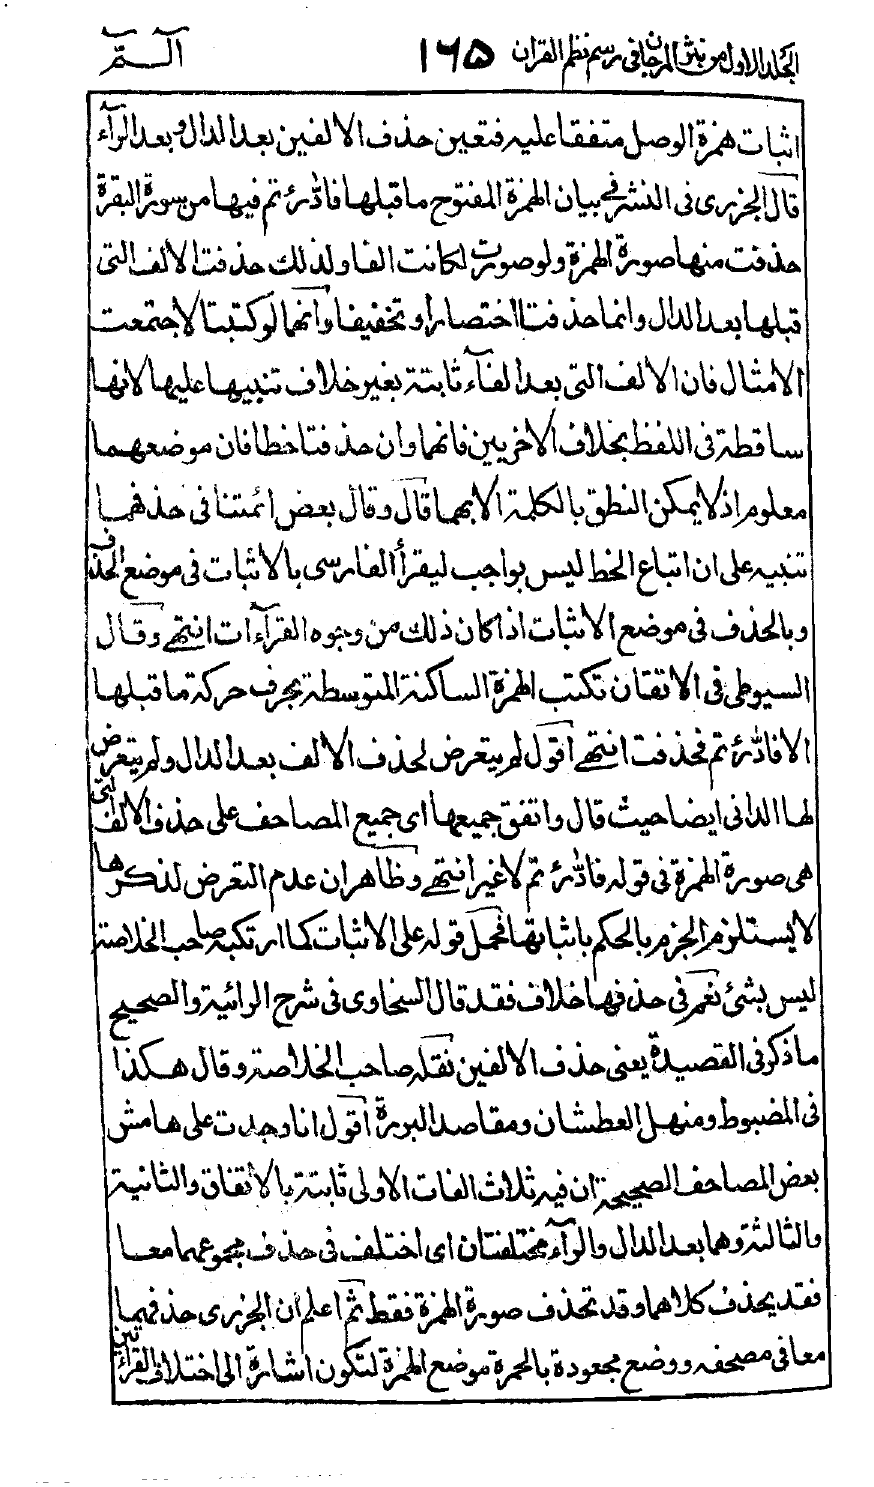 الجلد الاول من نثر المرجان فى رسم نظم القران ١٦٥ الٓـمّٓ
اثبات همزة الوصل متفقا عليه فتعين حذف الالفين بعد الدال وبعد الرآء
قال الجزرى فى النشر فى بيان الهمزة المفتوح ما قبلها فادّٰرءتم فيها من سورة البقرة
حذفت منها صورة الهمزة ولو صورت لكانت الفا ولذلك حذفت الالف التى
قبلها بعد الدال وانما حذفتا اختصارا وتخفيفا وانهما لو كتبتا لاجتمعت
الامثال فان الالف التى بعد الفآء ثابتة بغير خلاف تنبيها عليها لانها
ساقطة فى اللفظ بخلاف الاخريين فانهما وان حذفتا خطا فان موضعهما
معلوم اذ لا يمكن النطق بالكلمة الا بهما قال وقال بعض ائمتنا فى حذفهما
تنبيه على ان اتباع الخط ليس بواجب ليقرأ القارسى بالاثبات فى موضع الحذف
وبالحذف فى موضع الاثبات اذا كان ذلك من وجوه القرآءات انتهے وقال
السيوطى فى الاتقان تكتب الهمزة الساكنة المتوسطة بحرف حركة ما قبلها
الا فادّٰرءتم فحذفت انتهے اقول لم يتعرض لحذف الالف بعد الدال ولم يتعرض
لها الدانى ايضا حيث قال واتفق جميعها اى جميع المصاحف على حذف الالف التى
هى صورة الهمزة فى قوله فادّٰرءتم لا غير انتهے وظاهر ان عدم التعرض لذكرها
لا يستلزم الجزم بالحكم باثباتها فحمل قوله على الاثبات كما ارتكبه صاحب الخلاصة
ليس بشئ نعم فى حذفها خلاف فقد قال السخاوى فى شرح الرائية والصحيح
ما ذكر فى القصيدة يعنى حذف الالفين نقله صاحب الخلاصة وقال هكذا
فى المضبوط ومنهل العطشان ومقاصد البررة اقول انا وجدت على هامش
بعض المصاحف الصحيحة ان فيه ثلاث الفات الاولى ثابتة بالاتفاق والثانية
والثالثة وهما بعد الدال والرآء مختلفتان اى اختلف فى حذف مجموعهما معا
فقد يحذف كلاهما وقد تحذف صورة الهمزة فقط ثم اعلم ان الجزرى حذفهما
معا فى مصحفه ووضع مجعودة بالحمرة موضع الهمزة لتكون اشارة الى اختلاف القرائتين